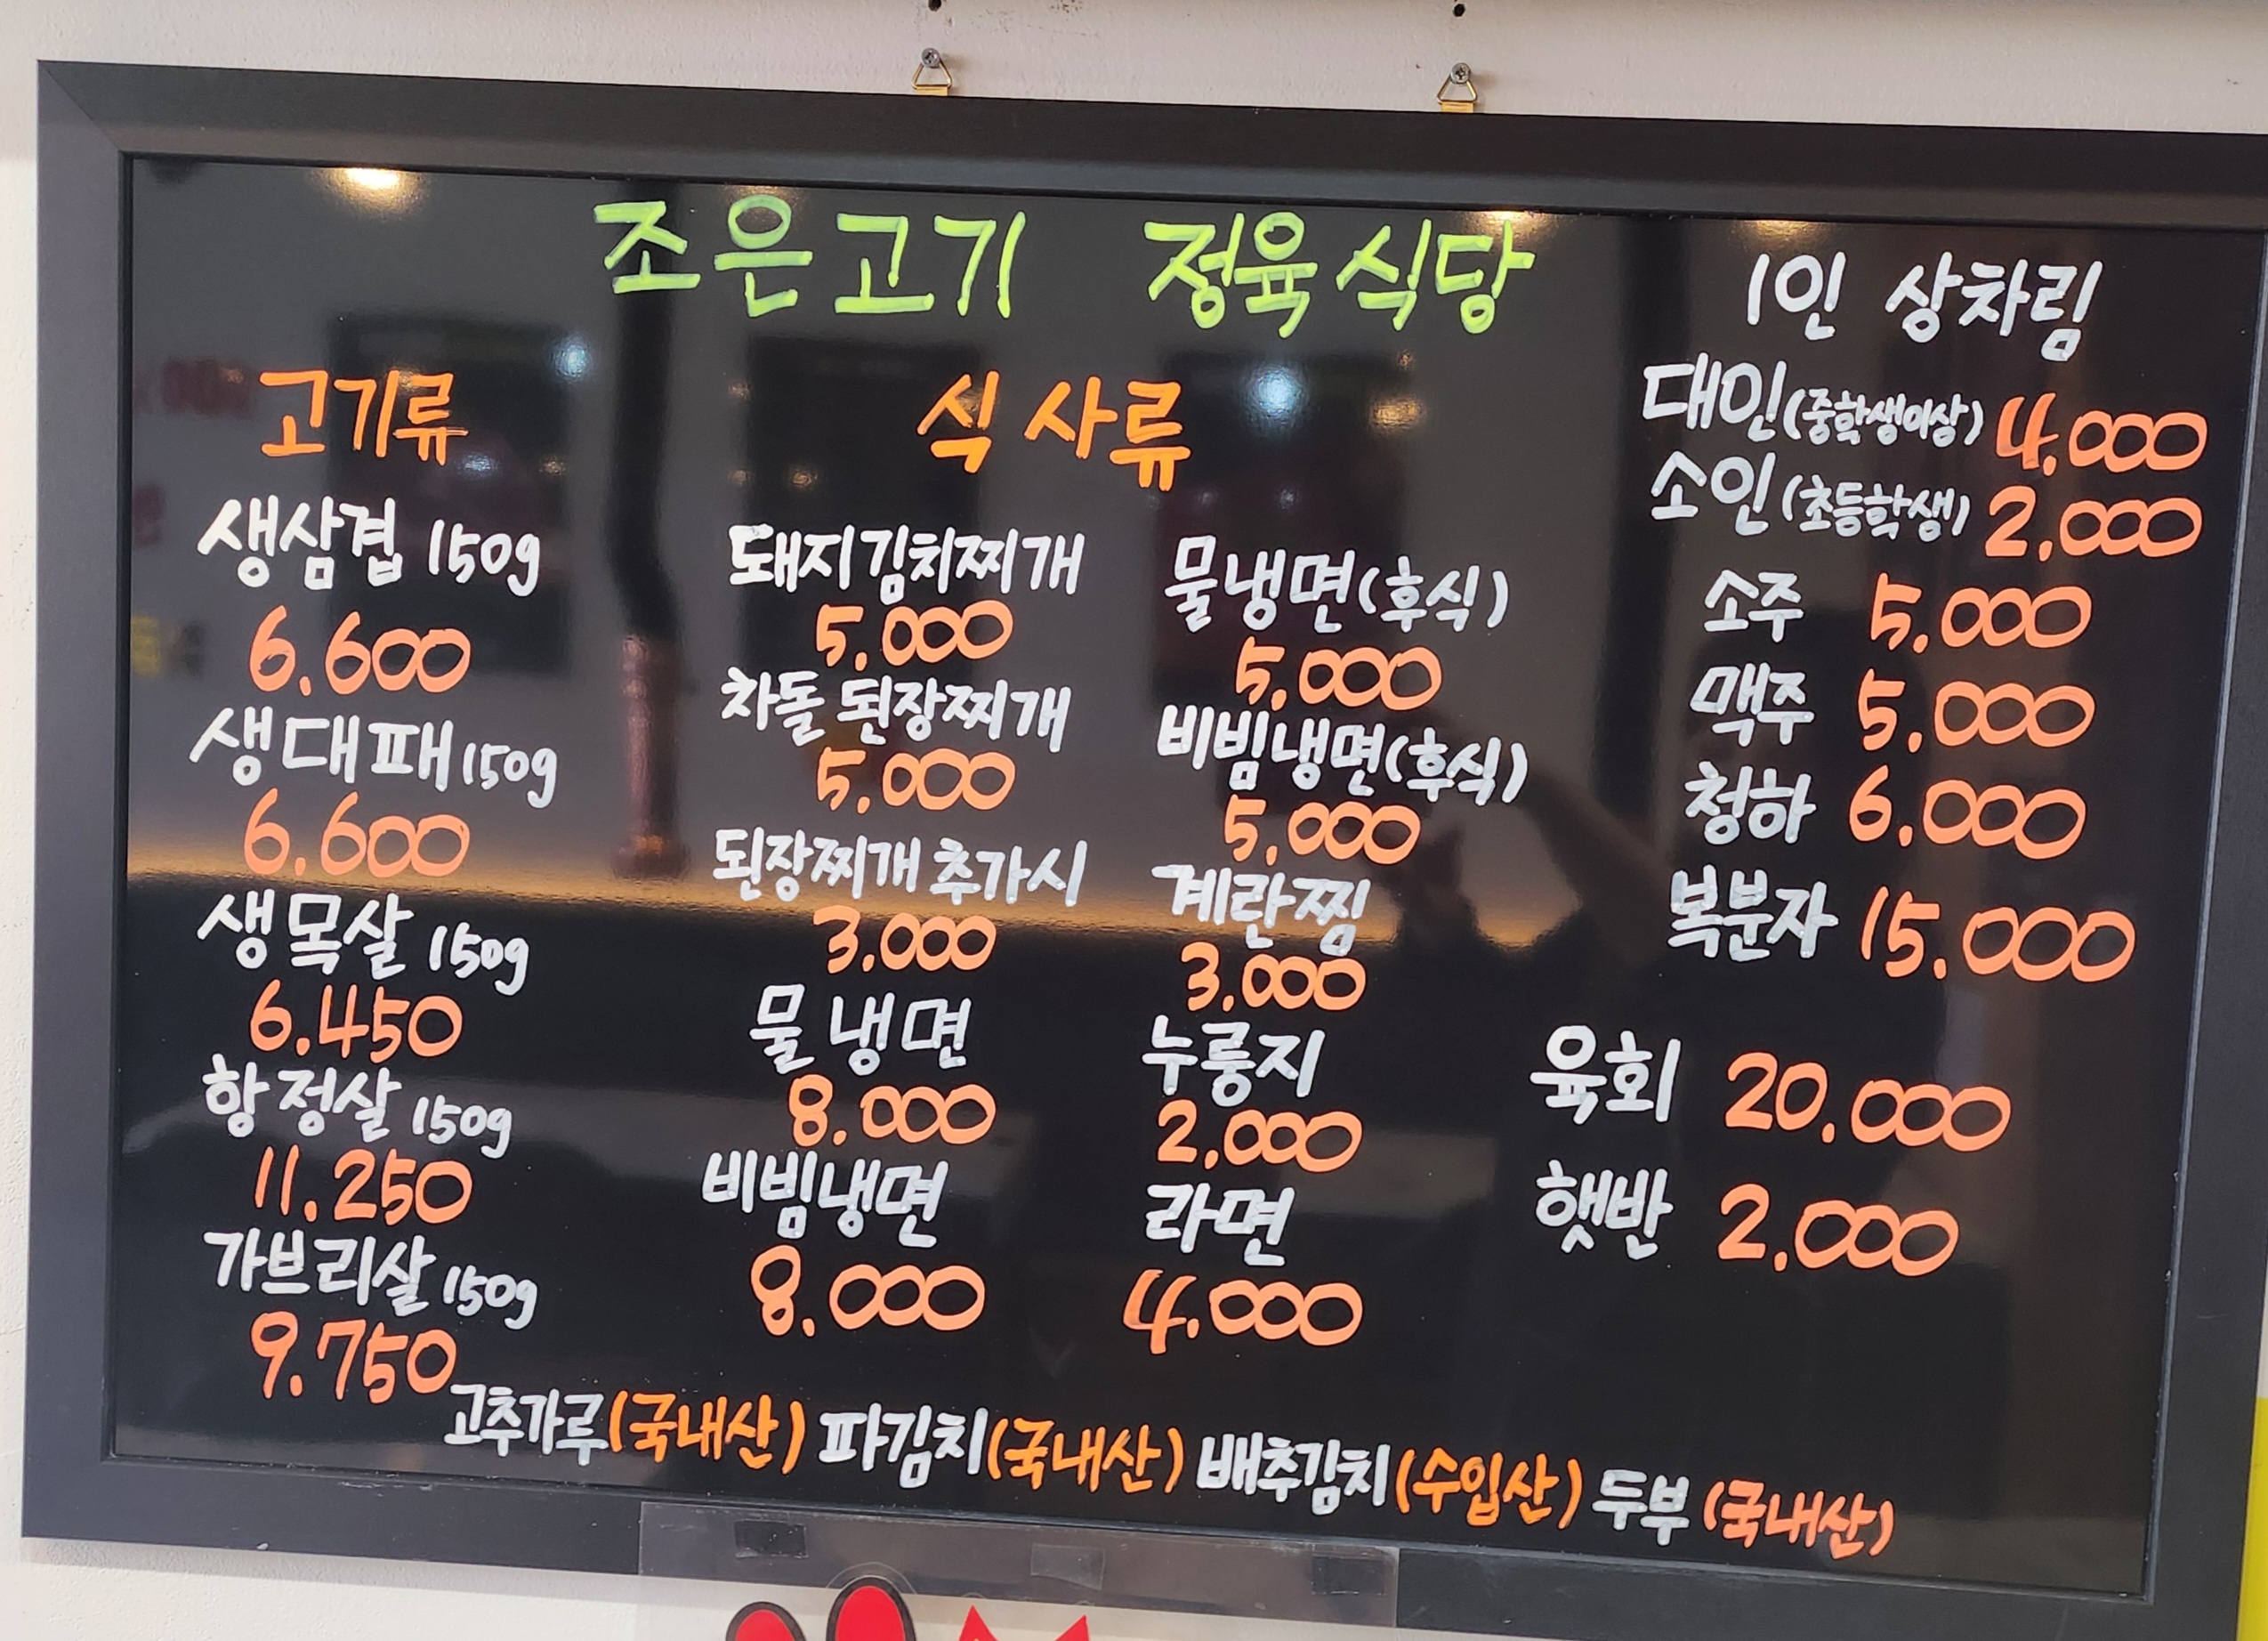 조은고기 정육식당
고기류
생삼겹 150g
6.600
생대패 150g
6.600
생목살 150g
6.450
항정살 150g
11.250
가브리살 150g
9.750
식사류
돼지김치찌개
5,000
차돌 된장찌개
5,000
된장찌개 추가시
3.000
물냉면
8.000
비빔냉면
8.000
물냉면(후식)
5,000
비빔냉면(후식)
5,000
계란찜
3,000
누룽지
2,000
라면
4.000
1인 상차림
대인(중학생이상) 4,000
소인(초등학생) 2,000
소주 5,000
맥주 5,000
청하 6,000
복분자 15.000
육회 20.000
햇반 2,000
고추가루(국내산) 파김치(국내산) 배추김치(수입산) 두부(국내산)